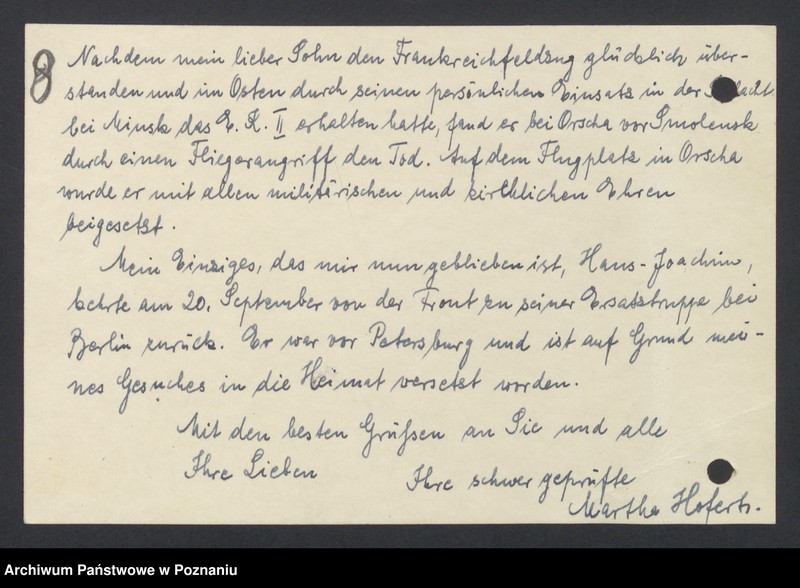 8
Nachdem mein lieber Sohn den Frankreichfeldzug glücklich über-
standen und im Osten durch seinen persönlichen Einsatz in der S lacht
bei Minsk das E. K. II erhalten hatte, fand er bei Orscha vor Smolensk
durch einen Fliegerangriff den Tod. Auf dem Flugplatz in Orscha
wurde er mit allen militärischen und kirchlichen Ehren
beigesetzt.
Mein Einziges, das mir nun geblieben ist, Hans-Joachim,
kehrte am 20. September von der Front zu seiner Ersatztruppe bei
Berlin zurück. Er war vor Petersburg und ist auf Grund mei-
nes Gesuches in die Heimat versetzt worden.
Mit den besten Grüßen an Sie und alle
Ihre Lieben
Ihre schwer geprüfte
Martha
Archiwum Państwowe w Poznaniu